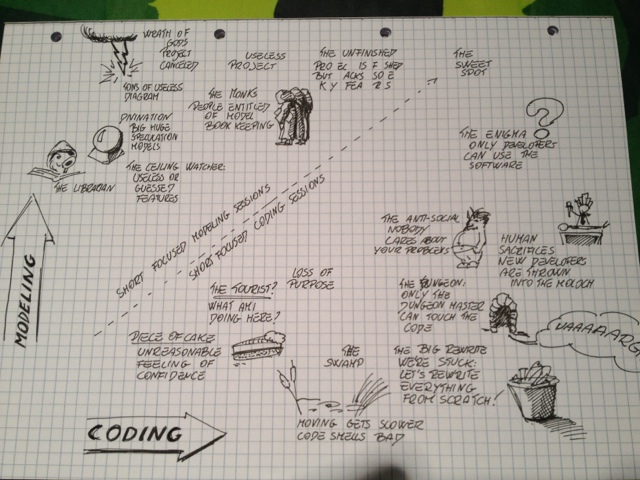 WRATH OF
GODS
PROJECT
CANCELED
TONS OF USELESS
DIAGRAM
USELESS
PROJECT
THE UNFINISHED
PRO EL IS F SHED
BUT ACKS SO E
K Y FEA R S
THE
SWEET
SPOT
THE MONKS
PEOPLE ENTITLED
OF MODEL
BOOK KEEPING
DIVINATION
BIG HUGE
SPECULATION
MODELS
THE ENIGMA
ONLY DEVELOPERS
CAN USE THE
SOFTWARE
THE LIBRARIAN
THE CEILING WATCHER:
USELESS OR
GUESSED
FEATURES
SHORT FOCUSED MODELING SESSIONS
SHORT FOCUSED CODING SESSIONS
THE ANTI-SOCIAL
NOBODY
CARES ABOUT
YOUR PROBLEMS
HUMAN
SACRIFICES
NEW DEVELOPERS
ARE THROWN
INTO THE MOLOCH
MODELING
THE TOURIST?
WHAT AM I
DOING HERE?
LOSS OF
PURPOSE
THE DUNGEON:
ONLY THE
DUNGEON MASTER
CAN TOUCH THE
CODE
UAAAAARG
PIECE OF CAKE
UNREASONABLE
FEELING OF
CONFIDENCE
THE
SWAMP
THE BIG REWRITE
WE'RE STUCK:
LET'S REWRITE
EVERYTHING
FROM SCRATCH!
MOVING GETS SLOWER
CODE SMELLS BAD
CODING